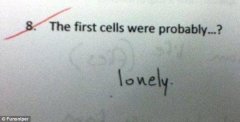 8. The first cells were probably...?
lonely.
© Funsniper